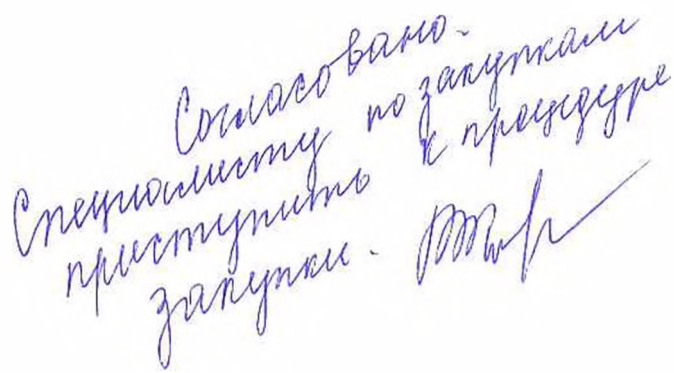 Согласовано.
Специалисту по закупкам
приступить к процедуре
закупки.